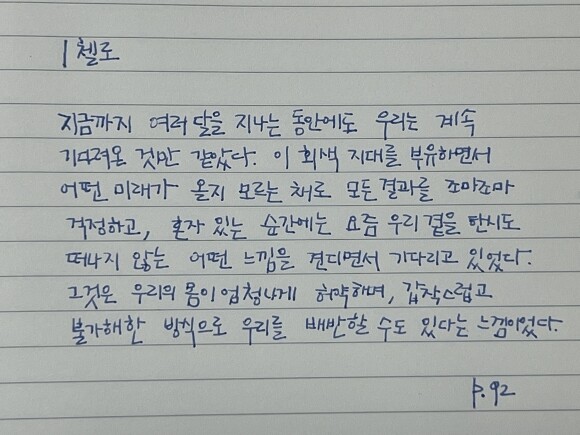 | 첼로
지금까지 여러 달을 지나는 동안에도 우리는 계속
기다려온 것만 같았다. 이 회색 지대를 부유하면서
어떤 미래가 올지 모르는 채로 모든 결과를 조마조마
걱정하고, 혼자 있는 순간에는 요즘 우리 곁을 한시도
떠나지 않는 어떤 느낌을 견디면서 기다리고 있었다.
그것은 우리의 몸이 엄청나게 허약하며, 갑작스럽고
불가해한 방식으로 우리를 배반할 수도 있다는 느낌이었다.
p.92